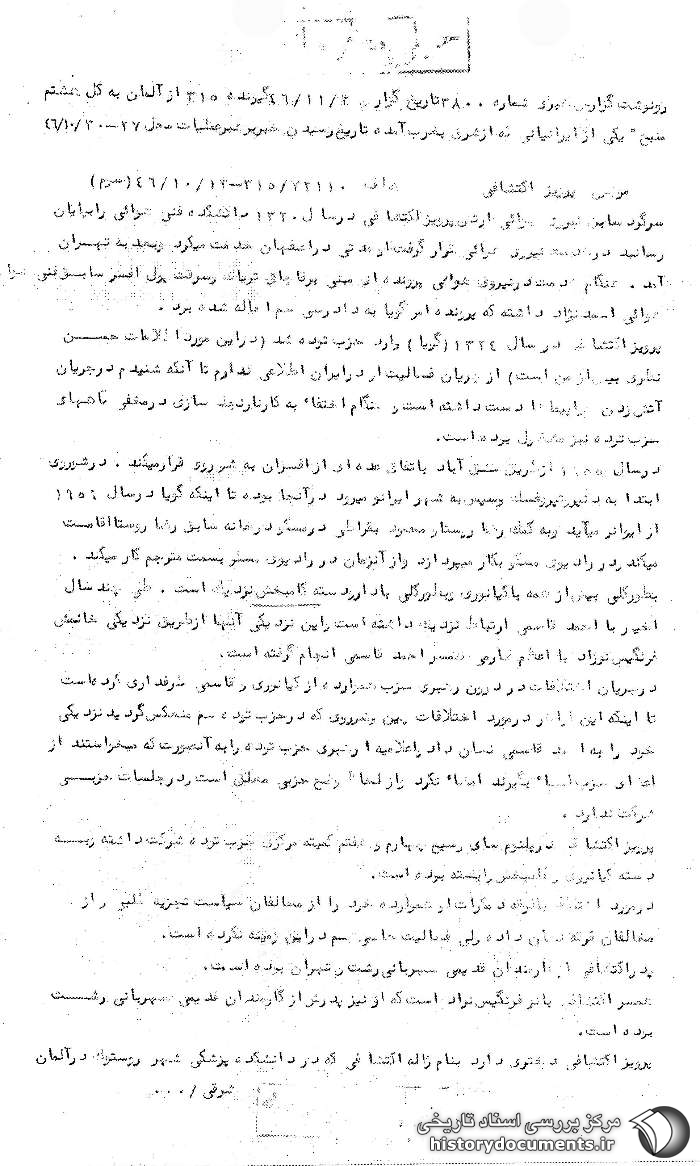 رونوشت گزارش خبری شماره ۳۸۰۰ تاریخ گزارش ۴۶/۱۱/۲ گیرنده ۳۱۵ از آلمان به کل هشتم
منبع " یکی از ایرانیانی که از شرق بغرب آمده تاریخ رسیدن خبر برهبر عملیات محل ۲۷-۴۶/۱۰/۳۰
پرویز اکتشافی ۳۱۵/۲۲۱۱۰-۴۶/۱۰/۱۳ (سرم)
سرگرد سابق نیروی هوائی ارتش پرویز اکتشافی در سال ۱۳۲۰ دانشکده فنی هوائی را بپایان
رسانید در خدمت نیروی هوائی قرار گرفت او مدتی در اصفهان خدمت میکرد وبعد به تهران
آمد . هنگام خدمت در نیروی هوائی پرونده ای مبنی بر قاچاق تریاک وسرقت پول افسر سابق فنی
هوائی اسعد نژاد داشته که پرونده امر گویا به دادرسی هم احاله شده بود .
پرویز اکتشافی در سال ۱۳۲۴ (گویا) وارد حزب توده شد (در این مورد اطلاعات حسن
نظری بیش از من است) از جریان فعالیت او در ایران اطلاعی ندارم تا آنکه شنیدم در جریان
آتش زدن دست داشته است و هنگام اختفاء به کار نارنجک سازی در مخفی گاههای
حزب توده نیز مشغول بوده است.
در سال از طریق عشق آباد باتفاق عده ای از افسران به شوروی فرار میکند . در شوروی
ابتدا به وسپس به شهر ایوانو میرود در آنجا بوده تا اینکه گویا در سال ۱۹۵۶
از ایوانو میآید وبه کمک رضا روستا و محمود بقراطی در مسکو در خانه سابق رضا روستا اقامت
میکند و در رادیوی مسکو بکار میپردازد واز آنزمان در رادیوی مسکو بسمت مترجم کار میکند .
بطورکلی بیش از همه با کیانوری وبطورکلی با دار و دسته کامبخش نزدیک است . طی چند سال
اخیر با احمد قاسمی ارتباط نزدیک داشته است و این نزدیکی آنها از طریق نزدیکی خانمش
فرنگیس نوزاد با اعظم صارمی همسر احمد قاسمی انجام گرفته است.
در جریان اختلافات در درون رهبری حزب همواره از کیانوری و قاسمی طرفداری کرده است
تا اینکه این اواخر در مورد اختلافات چین وشوروی که در حزب توده هم منعکس گردید نزدیکی
خود را به احمد قاسمی نشان داد و اعلامیه رهبری حزب توده را به آنصورت که میخواستند از
اعضای حزب امضاء بگیرند امضاء نکرد و از لحاظ وضع حزبی معلق است و در جلسات حزبی
شرکت ندارد .
پرویز اکتشافی در پلنوم های وسیع چهارم و هفتم کمیته مرکزی حزب توده شرکت داشته وبه
دسته کیانوری و کامبخش وابسته بوده است.
در مورد اختلاف با فرقه دمکرات او همواره خود را از مخالفان سیاست تجزیه طلبی و از
مخالفان فرقه نشان داده ولی فعالیت خاصی هم در این زمینه نکرده است.
پدر اکتشافی از کارمندان قدیمی شهربانی رشت و تهران بوده است.
همسر اکتشافی بانو فرنگیس نژاد است که او نیز پدرش از کارمندان قدیمی شهربانی رشت
بوده است.
پرویز اکتشافی دختری دارد بنام ژاله اکتشافی که در دانشکده پزشکی شهر روستوک در آلمان
شرقی / ۰۰۰
مرکز بررسی اسناد تاریخی
historydocuments.ir